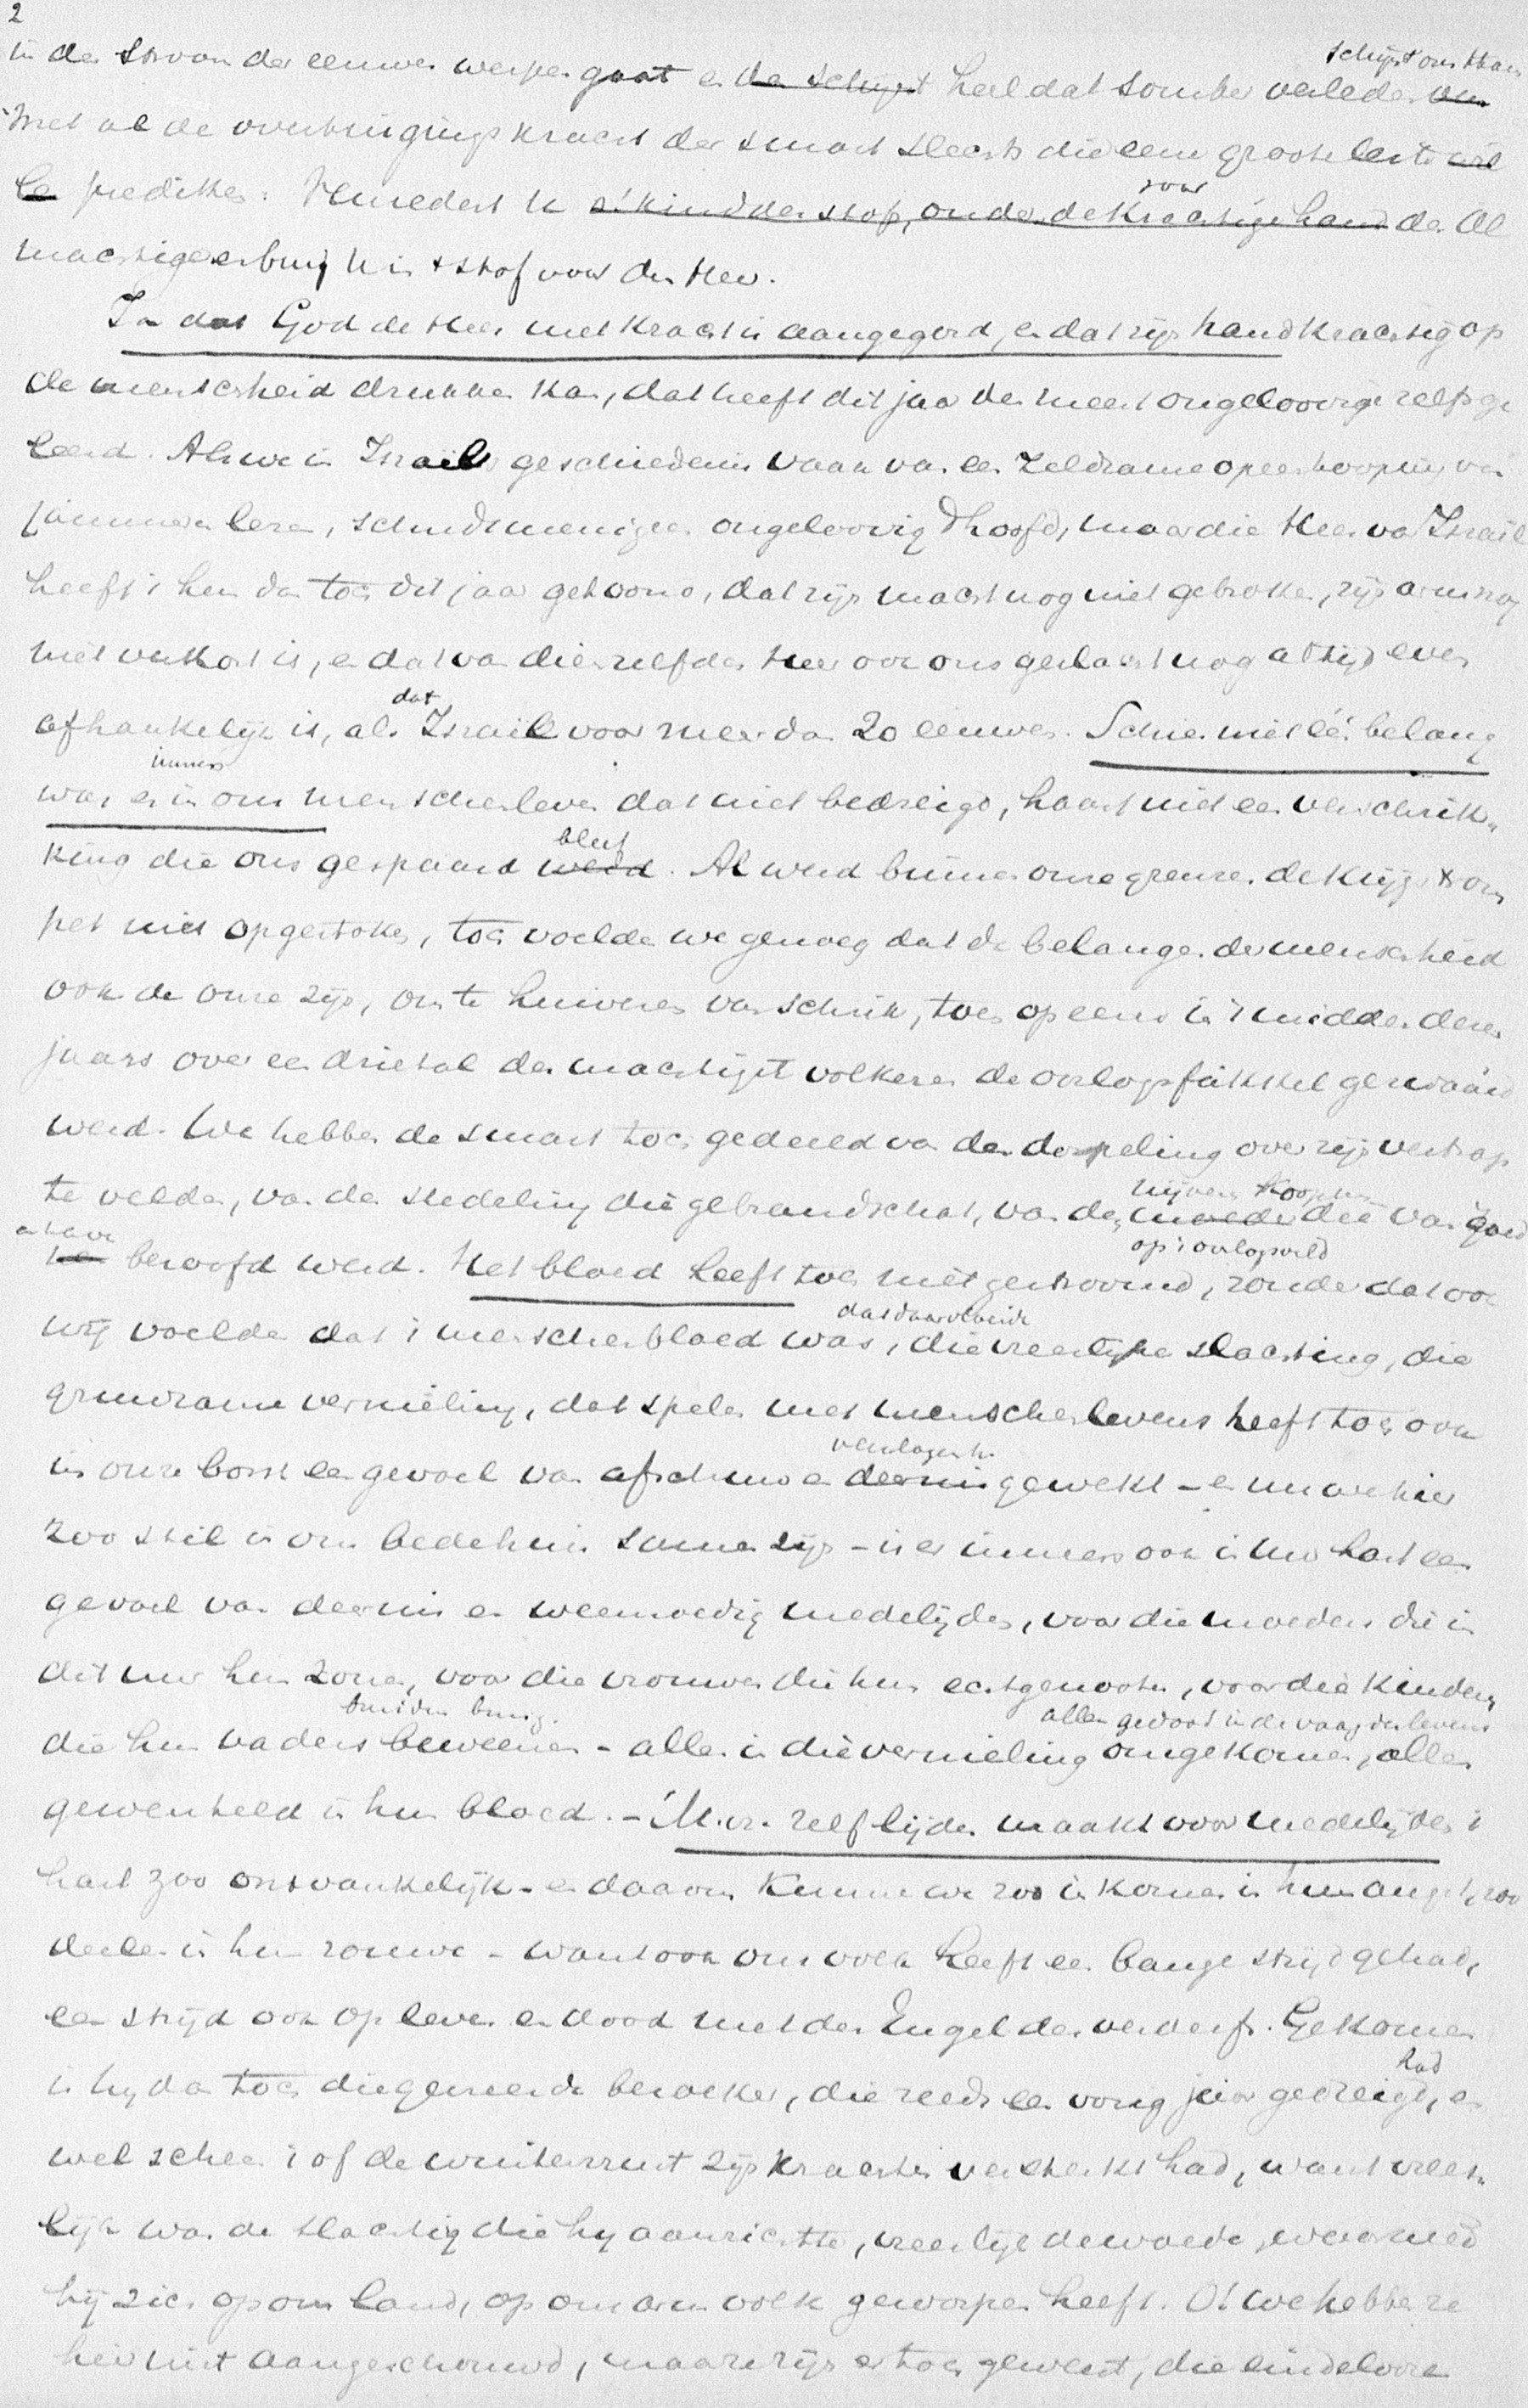 2
in den stroom der eeuwen werpen gaat en den schijnt heel dat somber verleden ons schijnt ons thans
Met al de overtuigingskracht der smart slechts die eene groote les te wil
len prediken: Vernedert U o! kind der stof, onder de krachtige hand voor den Al
machtige en buig U in 't stof voor den Heer.
Ja dat God de Heer met kracht is aangegord, en dat zijn hand krachtig op
de menschheid drukken kan, dat heeft dit jaar den meest ongeloovige zelfs ge
leerd. Als we in Israels geschiedenis vaak van een zeldzame opeenhooping van
jammeren lezen, schudt menigeen ongeloovig 't hoofd, maar die Heer van Israël
heeft 't hem dan toch dit jaar getoond, dat zijn macht nog niet gebroken, zijn arm nog
niet verkort is, en dat van dienzelfden Heer ook ons geslacht nog altijd even
afhankelijk is, als dat Israël voor meer dan 20 eeuwen. Schier niet één belang
was er immers in ons menschenleven dat niet bedreigd, haast niet een verschrik-
king die ons gespaard werd bleef. Al werd binnen onze grenzen de krijgstrom
pet niet opgestoken, toch voelden we genoeg dat de belangen der menschheid
ook de onze zijn, om te huiveren van schrik, toen opeens in 't midden dezes
jaars over een drietal der machtigste volkeren de oorlogsfakkel gezwaaid
werd. We hebben de smart toch gedeeld van den dorpeling over zijn vertrap
te velden, van den stedeling die gebrandschat, van den moeder nijvren koopman die van goed
en have beroofd werd. Het bloed heeft toch niet gestroomd op 't oorlogsveld, zonder dat ook
wij voelden dat 't menschenbloed was dat daar vloeide, die vreeselijke slachting, die
gruwzame vernieling, dat spelen met menschenlevens heeft toch ook
in onze borst een gevoel van afschuw en deernis verslagenh. gewekt – en nu we hier
zoo stil in ons bedehuis samen zijn – is er immers ook in Uw hart een
gevoel van deernis en weemoedig medelijden, voor die moeders die in
dit uur hun zonen, voor die vrouwen die hun echtgenooten, voor die kinderen
die hun vaders beweenen – allen in die vernieling omgekomen, allen gedood in de vaag des levens allen
gewenteld in hun bloed. – M. vr. zelf lijden maakt voor medelijden 't
hart zoo ontvankelijk – en daarom kunnen we zoo in komen in hun angst, zoo
deelen in hun rouwe – want ook ons volk heeft een bange strijd gehad,
een strijd ook op leven en dood met den Engel des verderfs. Gekomen
is hij dan toch die gevreesde bezoeker, die reeds een vorig jaar gedreigd had, en
wel scheen 't of de winterrust zijn krachten versterkt had, want vrees-
lijk was de slachting die hij aanrichtte, vreeslijk de woede, waarmeê
hij zich op ons land, op ons arm volk geworpen heeft. O! we hebben ze
hier niet aangeschouwd, maar ze zijn er toch geweest, die eindelooze